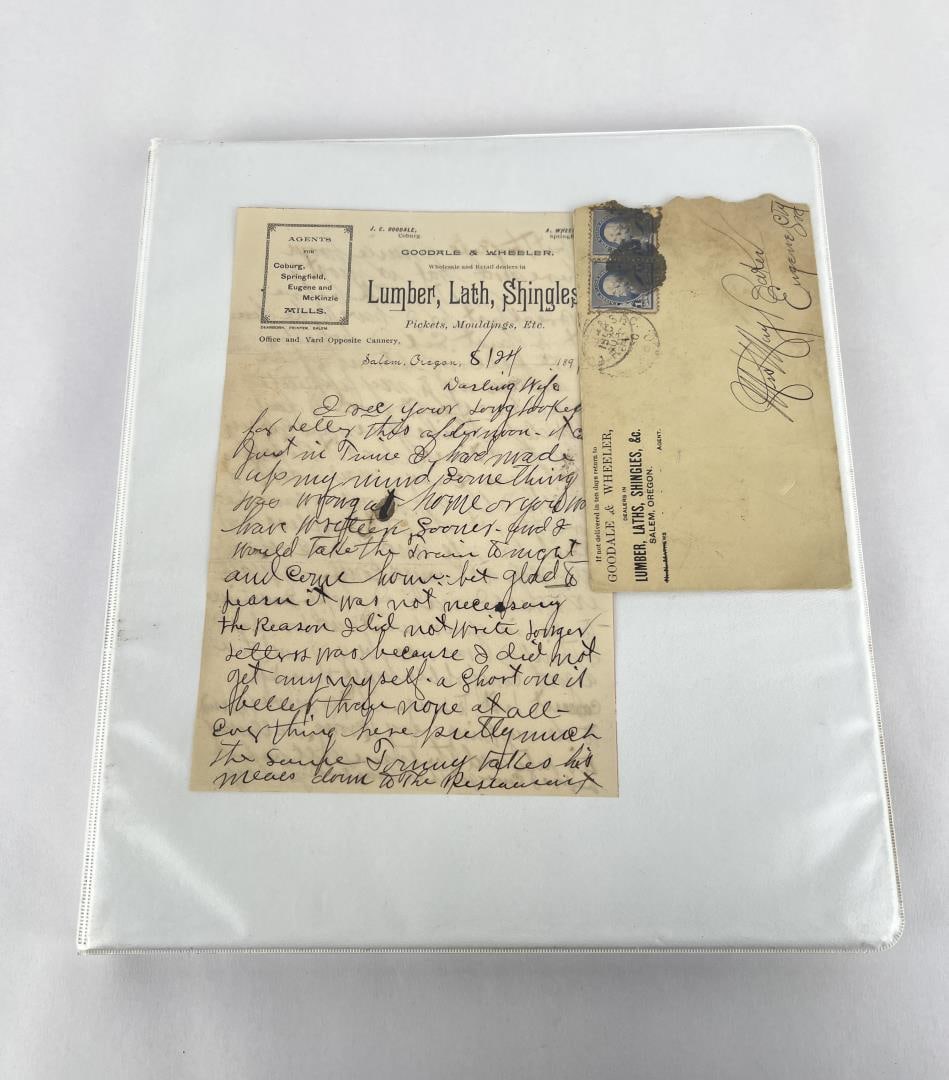 AGENTS
FOR
Coburg,
Springfield,
Eugene and
McKinzie
MILLS.
DEARBORN, PRINTER, SALEM
J. C. GOODALE,
Coburg
A. WHEE
Springf
GOODALE & WHEELER,
Wholesale and Retail dealers in
Lumber, Lath, Shingles
Pickets, Mouldings, Etc.
Office and Yard Opposite Cannery,
Salem, Oregon, 8/24 189
Darling Wife
I rec your long looked
for letter this afternoon - it
Just in Time I have made
up my mind something
was wrong at home or you
have written sooner - and I
would take the Train tonight
and come home - but glad to
learn it was not necessary
the Reason I did not write longer
letters was because I did not
get any myself - a short one is
better than none at all -
Everything here pretty much
the same Tommy takes his
meals down to the Restaurant
If not delivered in ten days return to
GOODALE & WHEELER,
DEALERS IN
LUMBER, LATHS, SHINGLES, &c.
SALEM, OREGON.
AGENT.
Mrs May
Eugene City